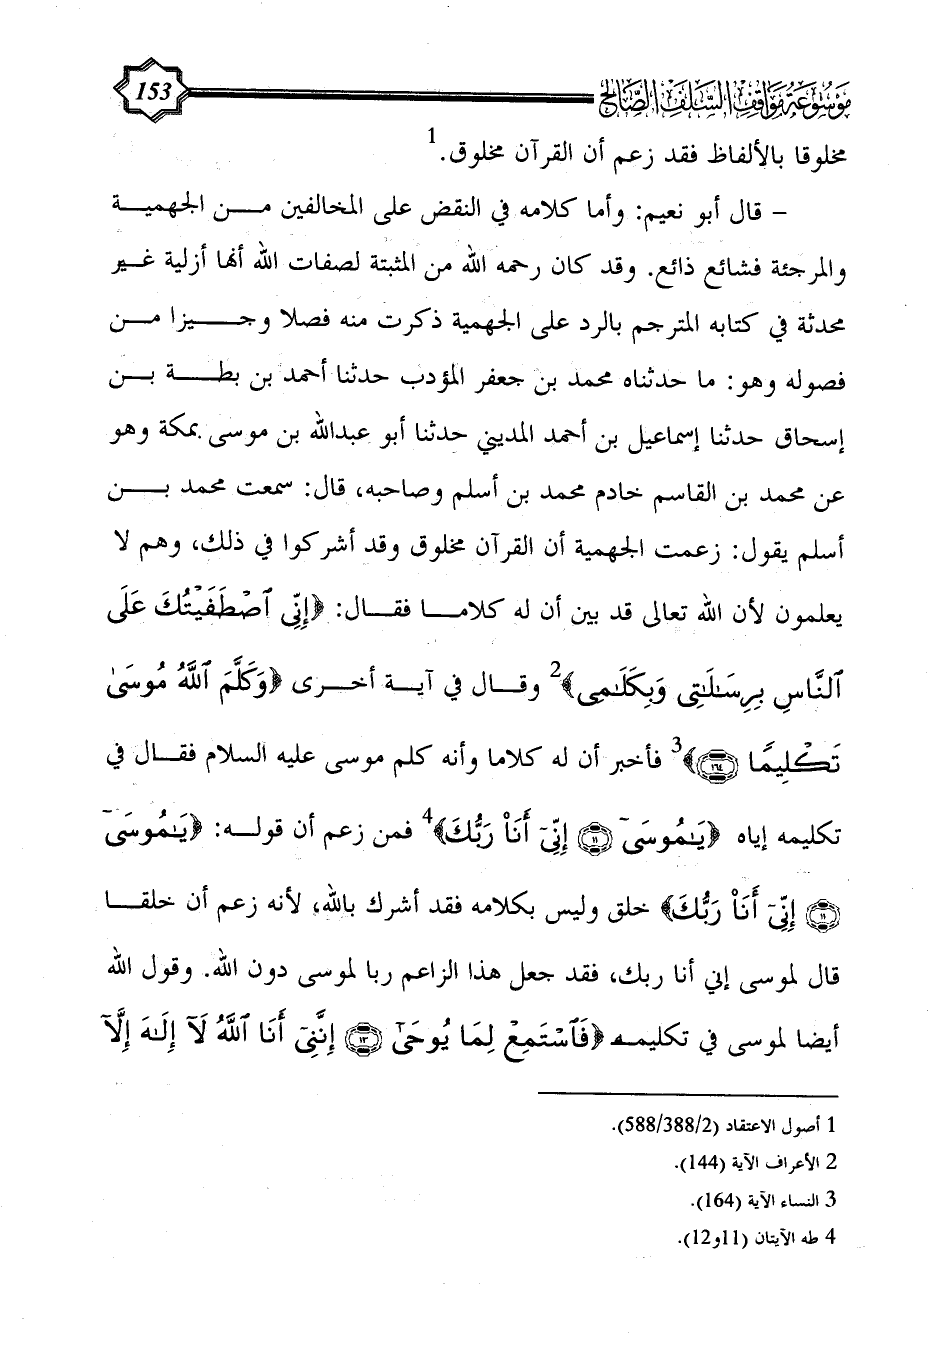 موسوعة مواقف السلف الصالح
153
مخلوقا بالألفاظ فقد زعم أن القرآن مخلوق.1
– قال أبو نعيم: وأما كلامه في النقض على المخالفين مـن الجهميـة
والمرجئة فشائع ذائع. وقد كان رحمه الله من المثبتة لصفات الله أنها أزلية غـير
محدثة في كتابه المترجم بالرد على الجهمية ذكرت منه فصلا وجـيزا مـن
فصوله وهو: ما حدثناه محمد بن جعفر المؤدب حدثنا أحمد بن بطـة بـن
إسحاق حدثنا إسماعيل بن أحمد المديني حدثنا أبو عبدالله بن موسى بمكة وهو
عن محمد بن القاسم خادم محمد بن أسلم وصاحبه، قال: سمعت محمد بـن
أسلم يقول: زعمت الجهمية أن القرآن مخلوق وقد أشركوا في ذلك، وهم لا
يعلمون لأن الله تعالى قد بين أن له كلامـا فقـال: ﴿إِنِّي ٱصْطَفَيْتُكَ عَلَى
ٱلنَّاسِ بِرِسَٰلَٰتِي وَبِكَلَٰمِي﴾2 وقـال في آيـة أخـرى ﴿وَكَلَّمَ ٱللَّهُ مُوسَىٰ
تَكْلِيمًا ١٦٤﴾3 فأخبر أن له كلاما وأنه كلم موسى عليه السلام فقـال في
تكليمه إياه ﴿يَٰمُوسَىٰٓ ١١ إِنِّيٓ أَنَا۠ رَبُّكَ﴾4 فمن زعم أن قولـه: ﴿يَٰمُوسَىٰٓ
١١ إِنِّيٓ أَنَا۠ رَبُّكَ﴾ خلق وليس بكلامه فقد أشرك بالله، لأنه زعم أن خلقـا
قال لموسى إني أنا ربك، فقد جعل هذا الزاعم ربا لموسى دون الله. وقول الله
أيضا لموسى في تكليمـه ﴿فَٱسْتَمِعْ لِمَا يُوحَىٰٓ ١٣ إِنَّنِيٓ أَنَا ٱللَّهُ لَآ إِلَٰهَ إِلَّآ
1 أصول الاعتقاد (588/388/2).
2 الأعراف الآية (144).
3 النساء الآية (164).
4 طه الآيتان (11و12).